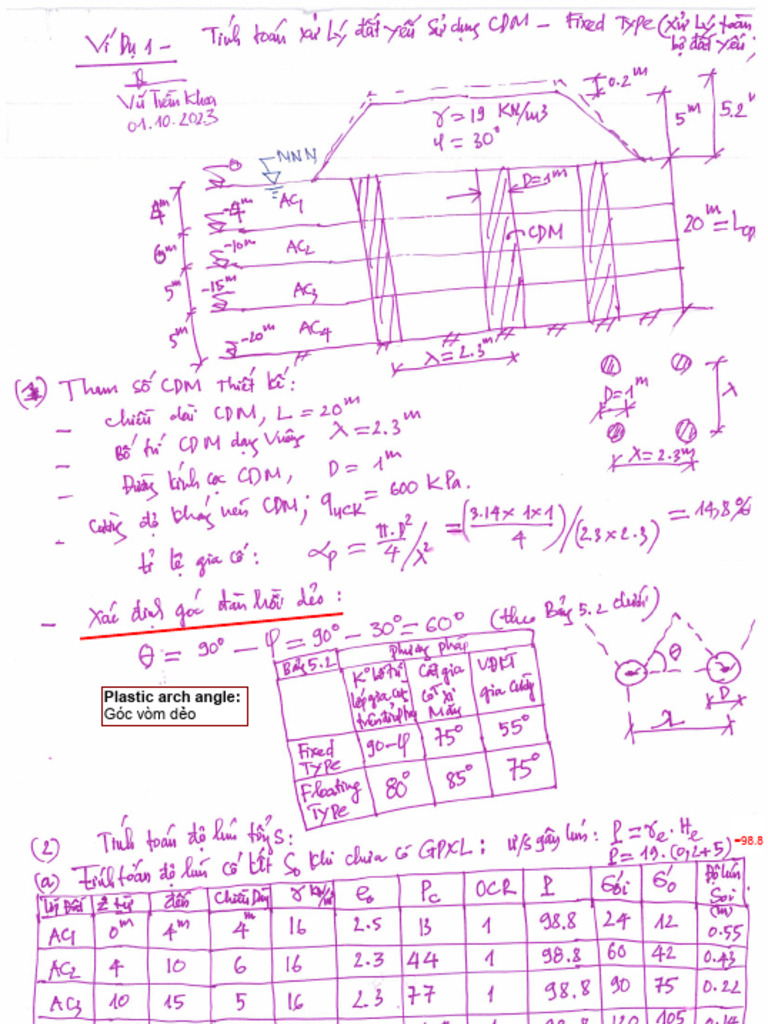 Ví Dụ 1 - Tính toán xử lý đất yếu sử dụng CDM - Fixed Type (xử lý toàn
bộ đất yếu;
Vũ Trần Khoa
01.10.2023
0.2m
5m
5.2
γ = 19 KN/m3
φ = 30°
MNN
0
D=1m
4m
-4m
AC1
6m
-10m
AC2
CDM
20m = Lcp
5m
-15m
AC3
5m
-20m
AC4
λ = 2.3m
(1) Tham số CDM thiết kế:
- chiều dài CDM, L = 20m
- Bố trí CDM dạng vuông λ = 2.3m
- Đường kính cọc CDM, D = 1m
- Cường độ kháng nén CDM; quck = 600 KPa.
tỉ lệ gia cố: αp = π.D²/4 / λ² = (3.14 x 1 x 1 / 4) / (2.3 x 2.3) = 14,8%
D=1m
λ
λ = 2.3m
- Xác định góc đàn hồi dẻo:
θ = 90° - φ = 90° - 30° = 60° (theo Bảng 5.2 dưới)
Plastic arch angle:
Góc vòm dẻo
Bảng 5.2 phương pháp
K° bố trí lớp gia cố trên đỉnh trụ Cát gia cố xi măng VĐKT gia cường
Fixed Type 90-φ 75° 55°
Floating Type 80° 85° 75°
θ
D
λ
(2) Tính toán độ lún tổng S:
(a) Tính toán độ lún cố kết So khi chưa có GPXL; ư/s gây lún: P = γe . He
P = 19.(0,2+5) =98.8
Lớp Đất Z từ đến Chiều Dày γ KN/m³ eo Pc OCR P σoi σo Độ lún Soi (m)
AC1 0m 4m 4m 16 2.5 13 1 98.8 24 12 0.55
AC2 4 10 6 16 2.3 44 1 98.8 60 42 0.43
AC3 10 15 5 16 2.3 77 1 98.8 90 75 0.22